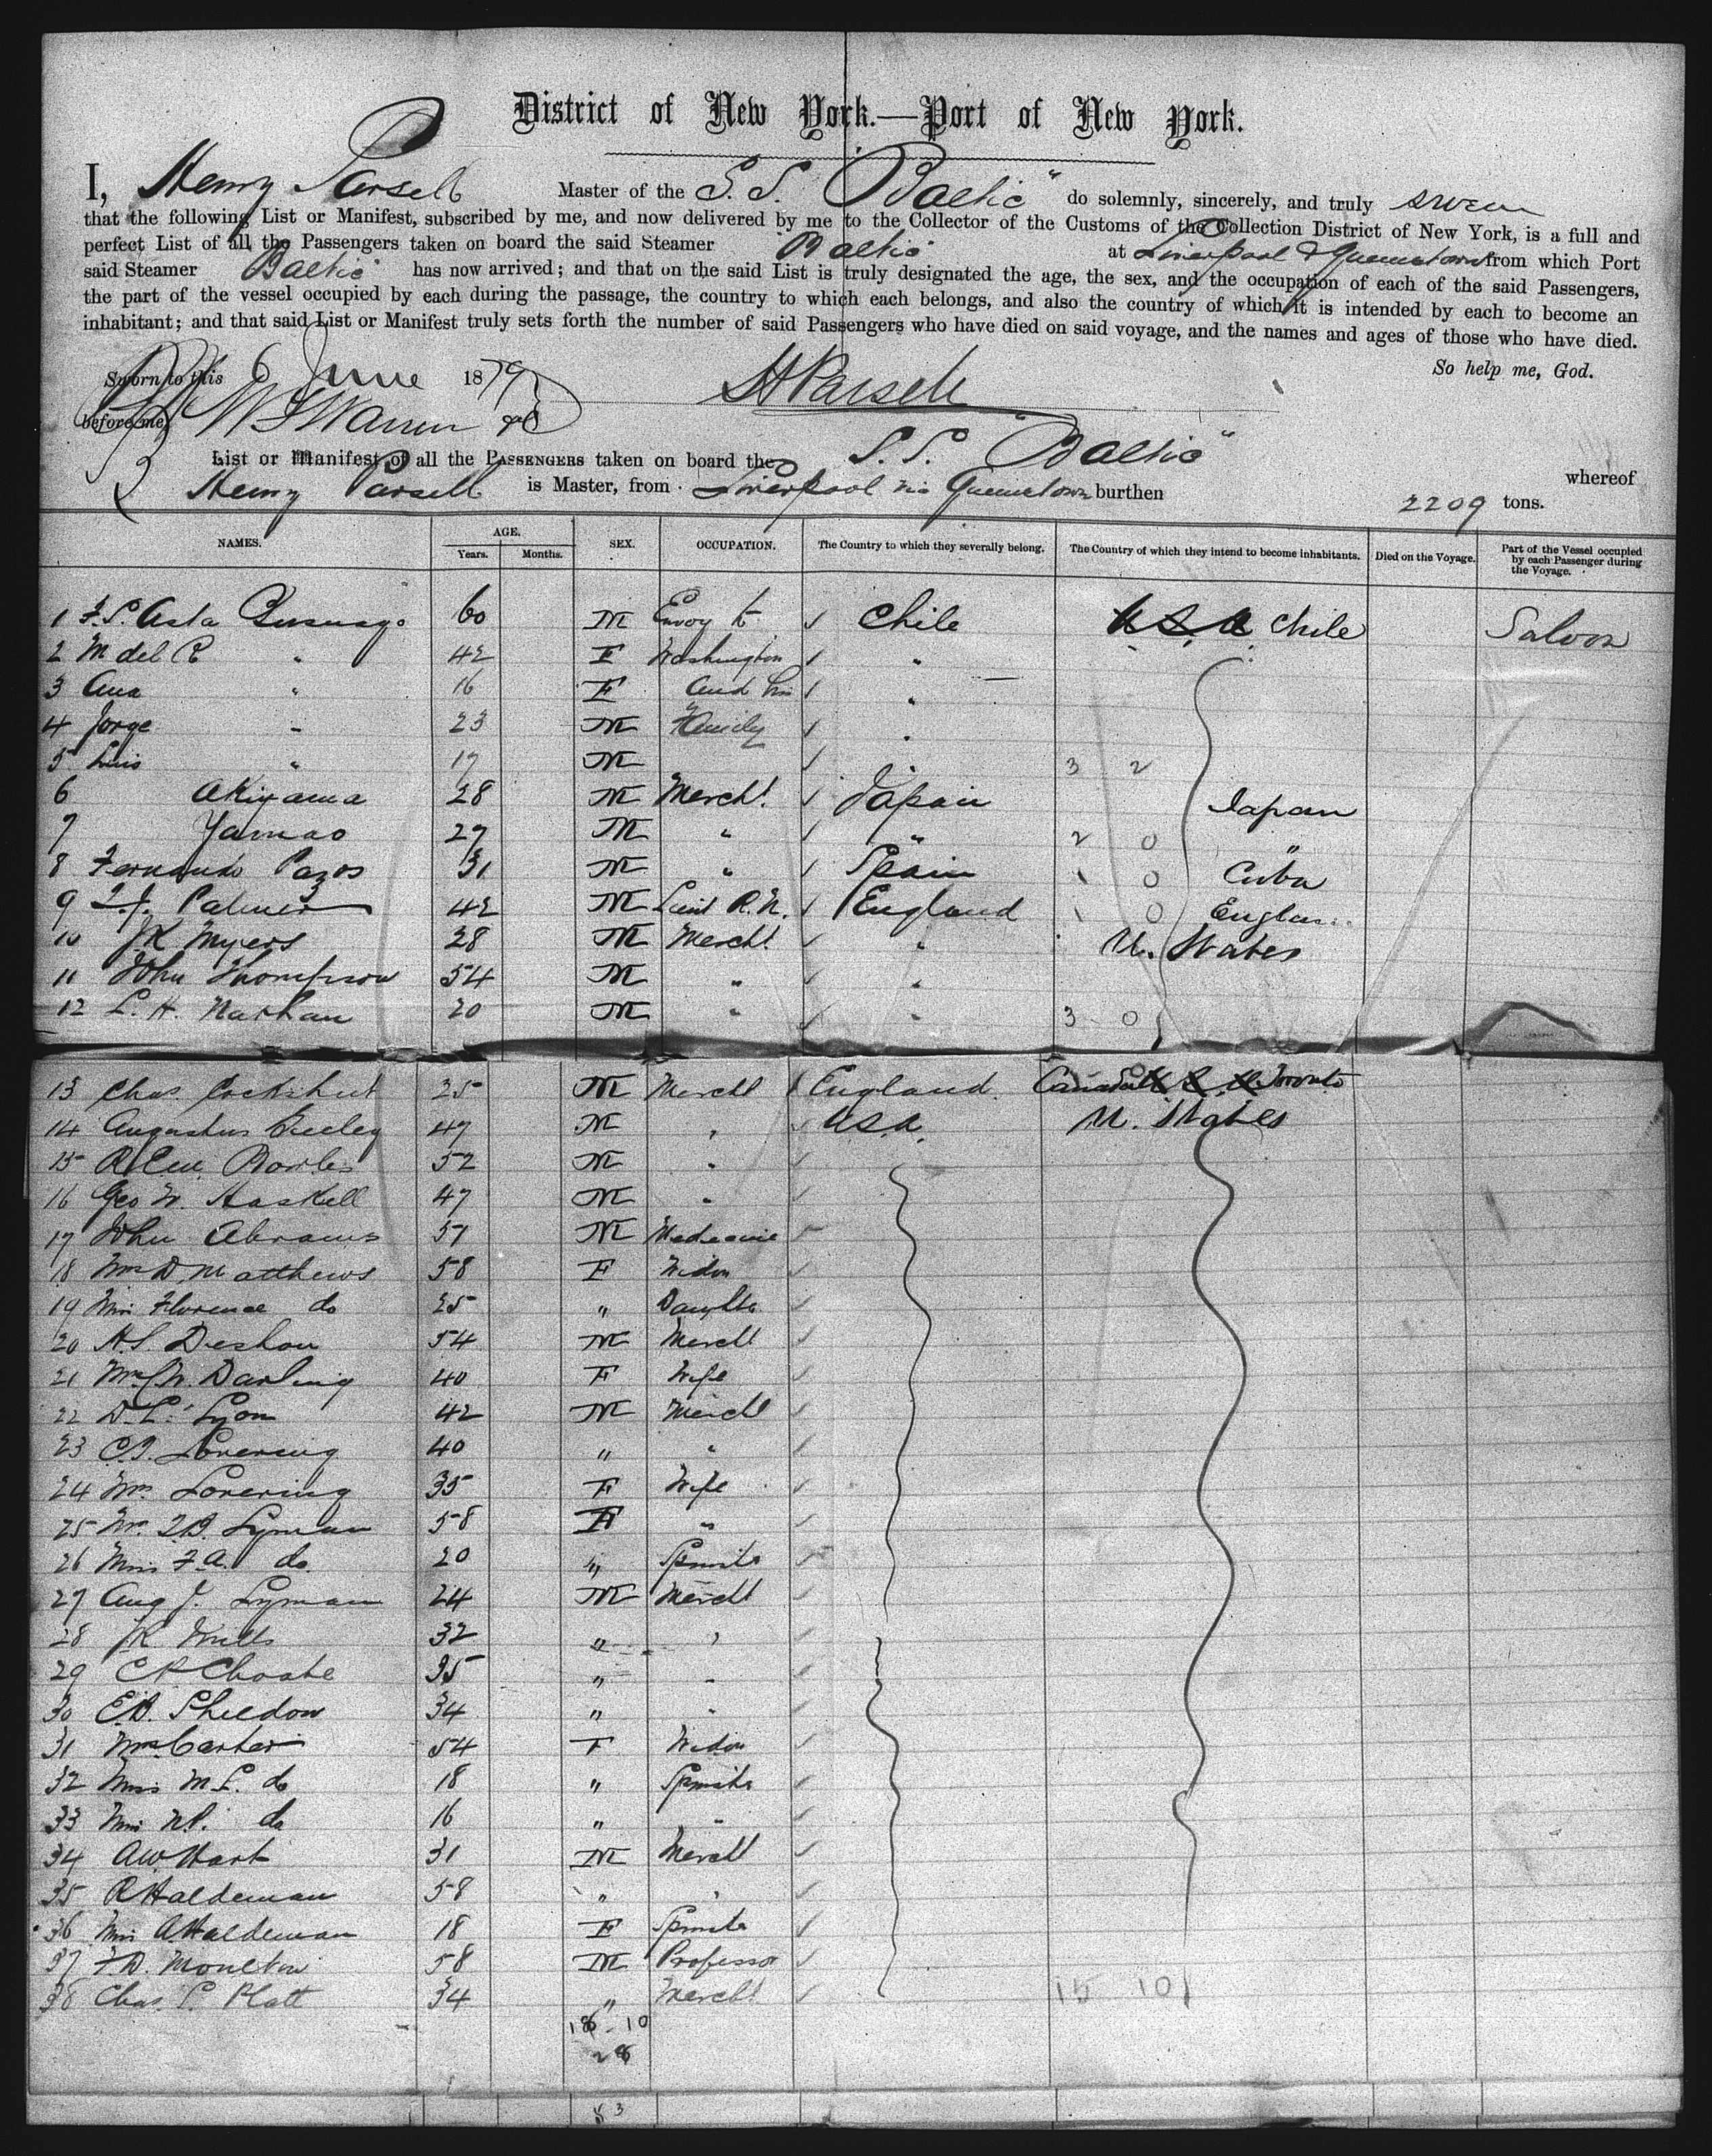 District of New York.—Port of New York.
I, Henry Parsell Master of the S.S. "Baltic" do solemnly, sincerely, and truly swear
that the following List or Manifest, subscribed by me, and now delivered by me to the Collector of the Customs of the Collection District of New York, is a full and
perfect List of all the Passengers taken on board the said Steamer Baltic at Liverpool & Queenstown from which Port
said Steamer Baltic has now arrived; and that on the said List is truly designated the age, the sex, and the occupation of each of the said Passengers,
the part of the vessel occupied by each during the passage, the country to which each belongs, and also the country of which it is intended by each to become an
inhabitant; and that said List or Manifest truly sets forth the number of said Passengers who have died on said voyage, and the names and ages of those who have died.
So help me, God.
Sworn to this 6 June 1879
H Parsell
before me,
List or Manifest of all the PASSENGERS taken on board the S.S. "Baltic" whereof
Henry Parsell is Master, from Liverpool via Queenstown burthen 2209 tons.
NAMES. AGE. SEX. OCCUPATION. The Country to which they severally belong. The Country of which they intend to become inhabitants. Died on the Voyage. Part of the Vessel occupied by each Passenger during the Voyage.
Years. Months.
1 F.S. Asta 60 M Envoy to Chile U.S.A Chile Saloon
2 M del C " 42 F Washington "
3 Ana " 16 F and his "
4 Jorge " 23 M Family "
5 Luis " 17 M " 3 2
6 Akiyama 28 M Mercht. Japan Japan
7 Yamao 27 M " " 2 0 "
8 Fernando Pazos 31 M " Spain 1 0 Cuba
9 Palmer 42 M Lieut R.N. England 1 0 Englan
10 J K Myers 28 M Mercht " U. States
11 John Thompson 54 M " "
12 L. H. Nathan 20 M " " 3 0
13 Chas. Cockshut 25 M Mercht England. Canada Toronto
14 Augustus 47 M " U.S.A. U. States
15 52 M "
16 Geo W. Haskell 47 M "
17 John Abrams 51 M
18 Mrs D. Matthews 58 F Widow
19 Miss Florence do 25 " Daughter
20 H.S. Deshon 54 M Mercht
21 Mrs C.W. Darling 40 F Wife
22 D. L. Lyon 42 M Mercht
23 Lovering 40 " "
24 Mrs. Lovering 35 F Wife
25 Lyman 58 F "
26 Miss F.A. do. 20 " Spinster
27 Aug J. Lyman 24 M Mercht
28 J K Mills 32 " "
29 C F Choate 35 " "
30 E.B. Sheldon 34 " "
31 Mrs Carter 54 F Widow
32 Miss M.L. do 18 " Spinster
33 Miss do 16 " "
34 A W Hart 31 M Mercht
35 R Haldeman 58 " "
36 Miss A Haldeman 18 F Spinster
37 F.D. Moulton 58 M Professor
38 Chas. S. Platt 34 " Mercht 15 10
18 - 10
28